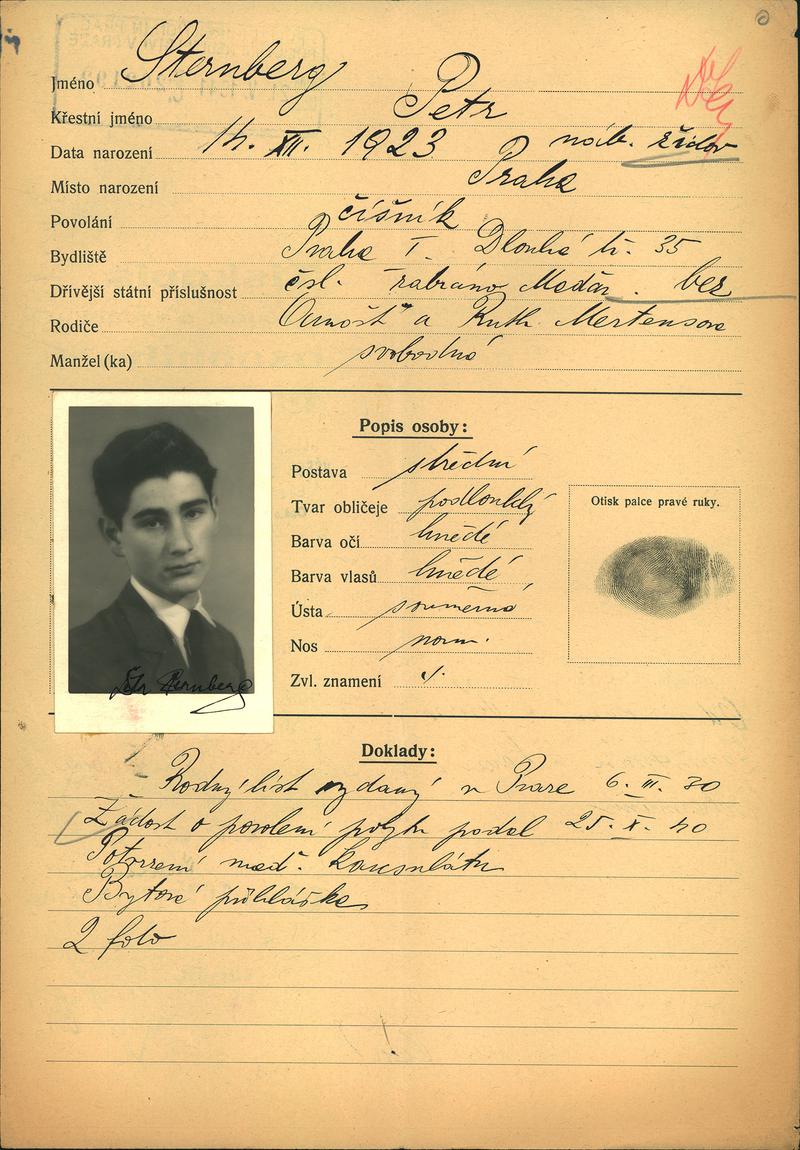 Jméno Sternberg
Křestní jméno Petr
Data narození 14. XII. 1923 náb. židov
Místo narození Praha
Povolání číšník
Bydliště Praha I. Dlouhá tř. 35
Dřívější státní příslušnost čsl. zabráno Maďar. bez
Rodiče Arnošt a Ruth Mertensova
Manžel (ka) svobodná
Popis osoby:
Postava střední
Tvar obličeje podlouhlý
Barva očí hnědé
Barva vlasů hnědé
Ústa souměrná
Nos norm.
Zvl. znamení
Otisk palce pravé ruky.
Petr Sternberg
Doklady:
Rodný list vydaný v Praze 6. III. 30
Žádost o povolení pobytu podal 25. X. 40
Potvrzení maď. konsulátu
Bytová přihláška
2 foto